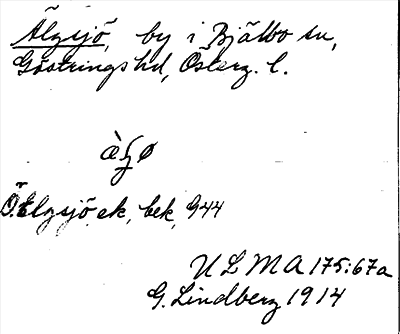 Älgsjö, by i Bjälbo sn,
Göstrings hd, Österg. l.
Ö. Elgsjö, ek, bek, G44
ULMA 175:67a
G. Lindberg 1914